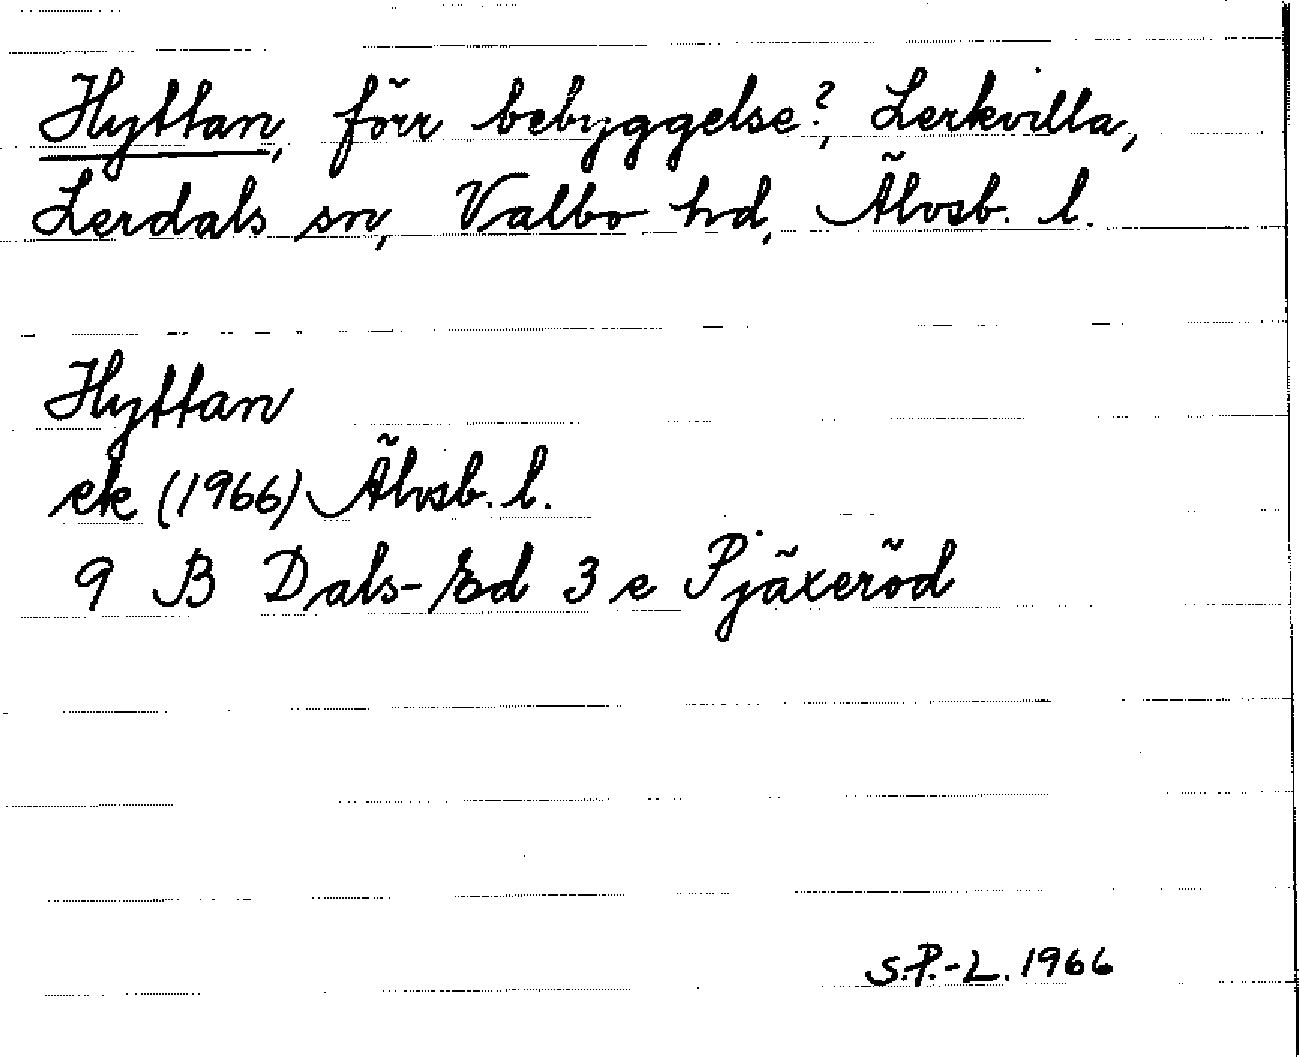 Hyttan, förr bebyggelse?, Lerkvilla,
Lerdals sn, Valbo hd, Älvsb. l.
Hyttan
ek (1966) Älvsb. l.
9 B Dals-Ed 3 e Pjäxeröd
S.P.-L. 1966